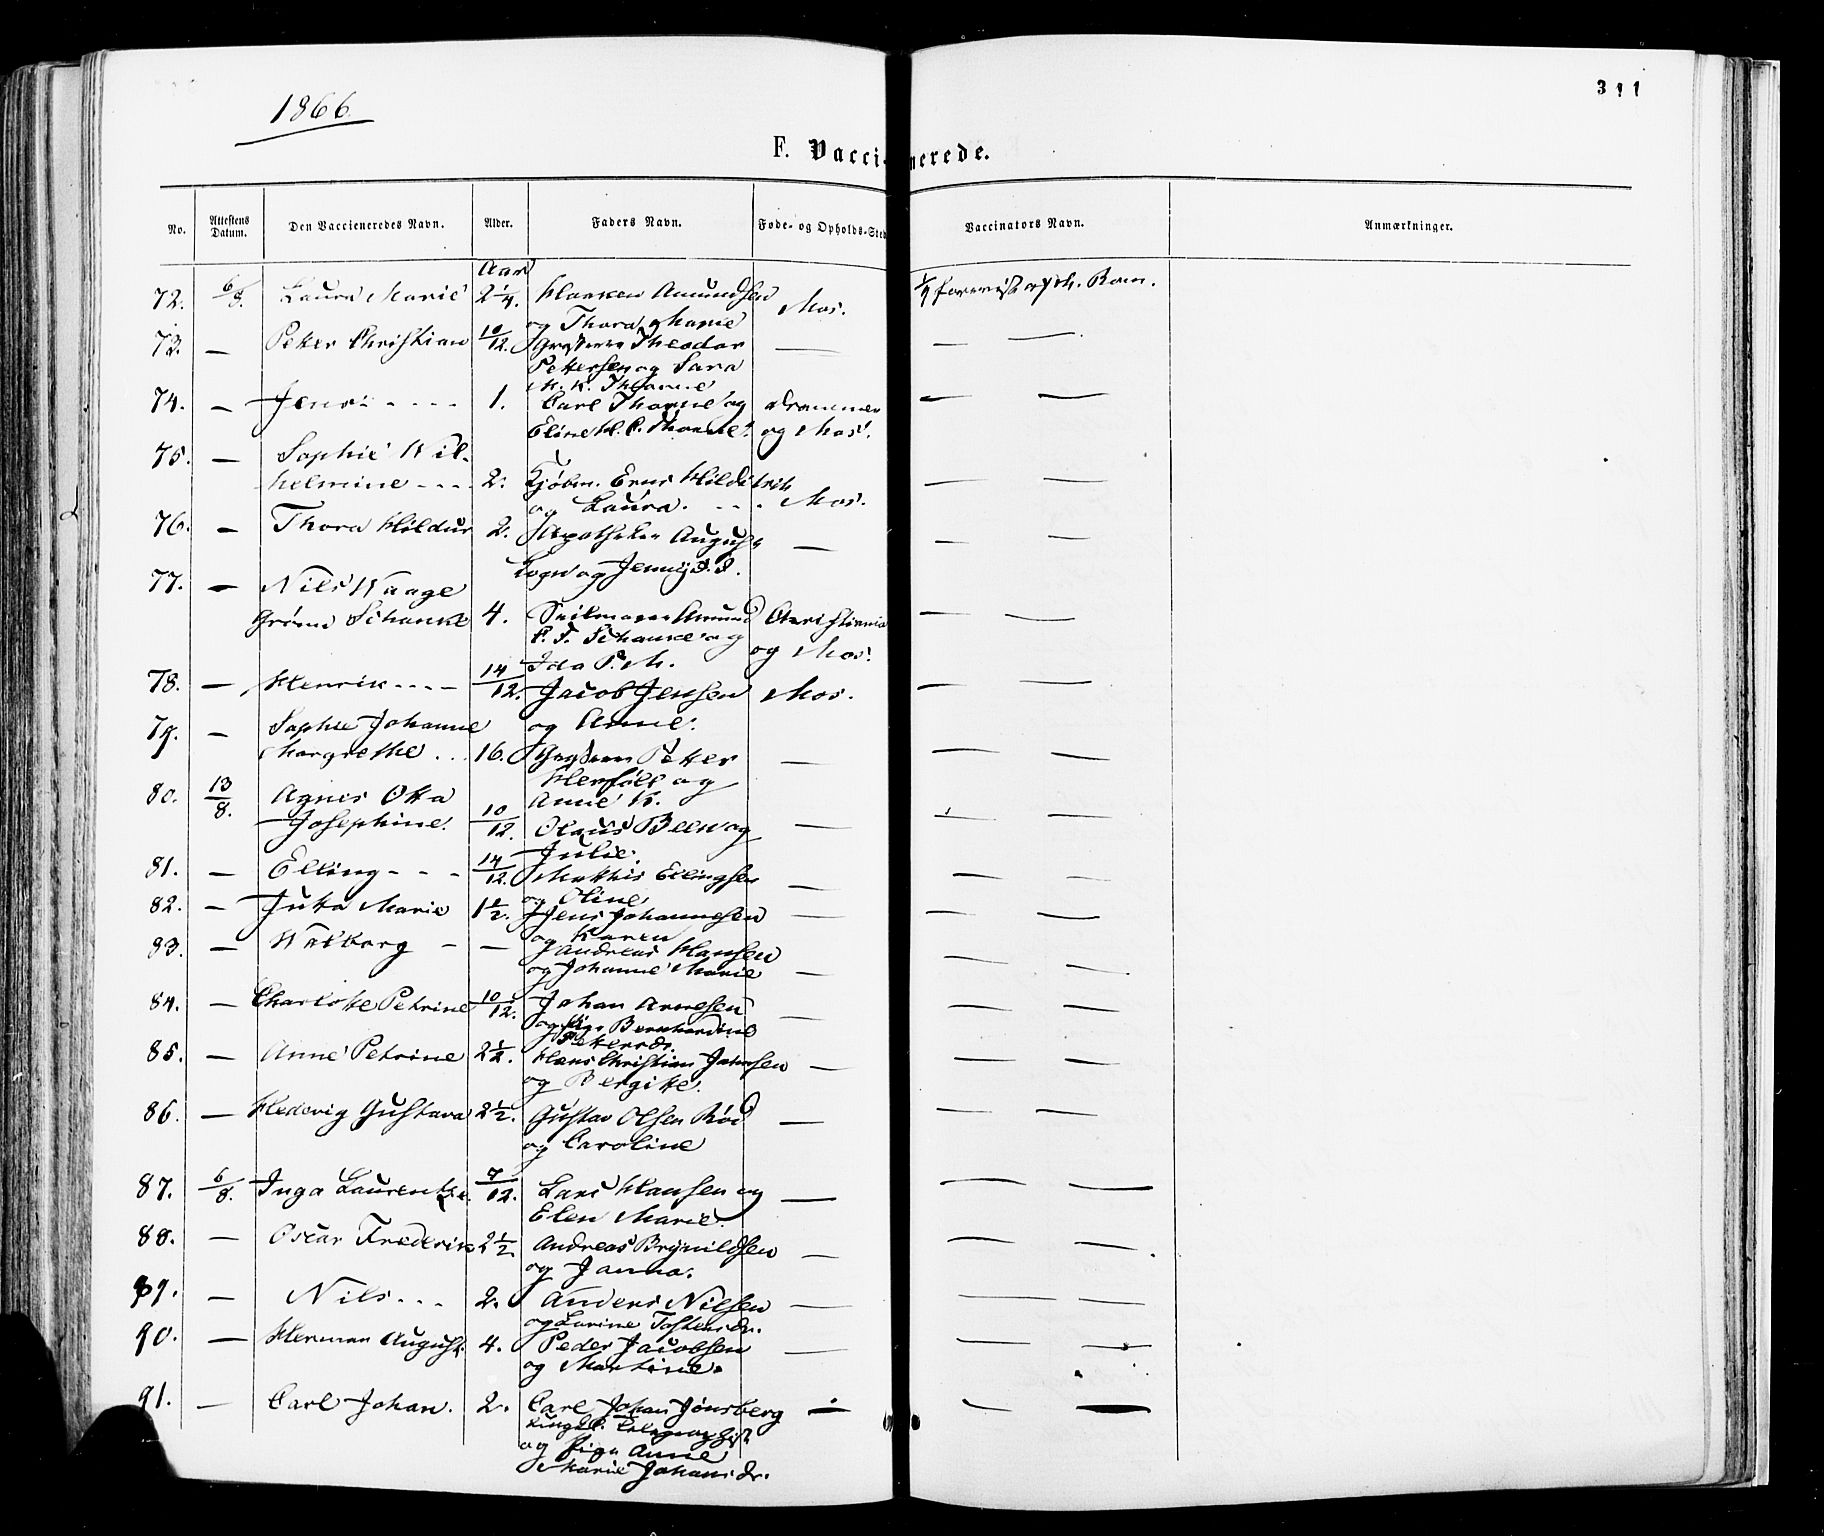 1866
311
F. Vaccienerede.
No. Attestens Datum. Den Vaccieneredes Navn. Alder. Faders Navn. Føde- og Opholds-Sted Vaccinators Navn. Anmærkninger.
Aar
72. 6/8. Laura Marie 2 1/4. Haaken Amundsen Mos.
og Thora Marie
73. — Peter Christian 10/12. Theodor — — —
Petersen og Sara
M. K. Thorne
74. — Jens - - - - 1. Carl Thorne og Drammen — —
Eline H. P. Thorne. og Mos.
75. — Sophie Wil-
helmine - - - 2. Kjøbm. Erns Hilditsch Mos. — —
og Laura. - - -
76. — Thora Hildur 2. Apotheker August — — —
og Jenny d. d.
77. — Nils Waage
Schanke 4. Seilmager Amund Christiania — —
P. T. Schanke og og Mos.
Ida P. M.
78. — Henrik - - - - 14/12. Jacob Jensen Mos. — —
og Anne.
79. — Sophie Johanne
Margrethe . . . 16. Peter — — —
Herföll og
Anne K.
80. 13/8. Agnes Otta
Josephine. 10/12. Olaus Been og — — —
Julie.
81. — Elling - - - 14/12. Mathis Ellingsen — — —
og Oline
82. — Jutta Marie 1 1/2. Jens Johannesen — — —
og Karen
83. — Walborg - — Andreas Hansen
og Johanne Marie — — —
84. — Charlotte Petrine 10/12. Johan Arnesen — — —
og Bernhardine
Petersdr.
85. — Anne Petrine 2 1/2. Hans Christian Jansen — — —
og Bergitte.
86. — Hedevig Gustava 2 1/2. Gustav Olsen Röd — — —
og Caroline
87. 6/8. Inga Laurentze 7/12. Lars Hansen og — — —
Elen Marie.
88. — Oscar Frederik 2 1/2. Andreas Brynildsen — — —
og Janna.
89. — Nils - - - 2. Anders Nilsen — — —
og Larine Tostensdr.
90. — Herman August. 4. Peder Jacobsen — — —
og Martine.
91. — Carl Johan. 2. Carl Johan Jönsberg — — —
Telegraphist
og Pige Anne
Marie Johansdr.